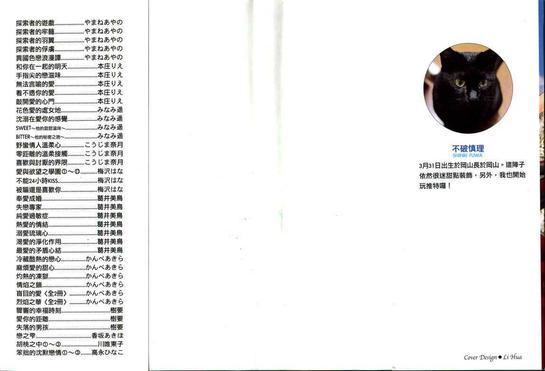 探索者的遊戲……………やまねあやの
探索者的牢籠……………やまねあやの
探索者的羽翼……………やまねあやの
探索者的俘虜……………やまねあやの
異國色戀浪漫譚…………やまねあやの
和你在一起的明天………本庄りえ
手指尖的戀滋味…………本庄りえ
無法言喻的愛……………本庄りえ
看不透你的愛……………本庄りえ
敲開愛的心門……………本庄りえ
花色愛的處女地…………みなみ遥
沈溺在愛你的感覺………みなみ遥
SWEET～他的甜甜滋味～……みなみ遥
BITTER～他的秘密之吻～……みなみ遥
野蠻情人溫柔心…………こうじま奈月
零距離的溫柔接觸………こうじま奈月
喜歡與討厭的界限………こうじま奈月
愛與欲望之學園①～③……梅沢はな
不能24小時KISS…………梅沢はな
被騙還是喜歡你…………梅沢はな
奉愛成婚…………………葛井美鳥
失戀專家…………………葛井美鳥
純愛過敏症………………葛井美鳥
熱愛的情結………………葛井美鳥
溺愛琉璃心………………葛井美鳥
渴愛的淨化作用…………葛井美鳥
最愛的矛盾心結…………葛井美鳥
冷藏酷熱的戀心…………かんべあきら
麻煩愛的甜心……………かんべあきら
灼熱的凍獄………………かんべあきら
情焰之鎖…………………かんべあきら
盲目的愛〈全2冊〉………かんべあきら
烈焰之華〈全2冊〉………かんべあきら
響響的幸福時刻…………樹要
愛你的距離………………樹要
失落的男孩………………樹要
戀之雫……………………香坂あきほ
胡桃之中①～③…………川唯東子
笨拙的沈默戀情①～③……高永ひなこ
不破慎理
SHINRI FUWA
3月31日出生於岡山長於岡山。這陣子
依然很迷甜點裝飾，另外，我也開始
玩推特囉！
Cover Design◆Li Hua